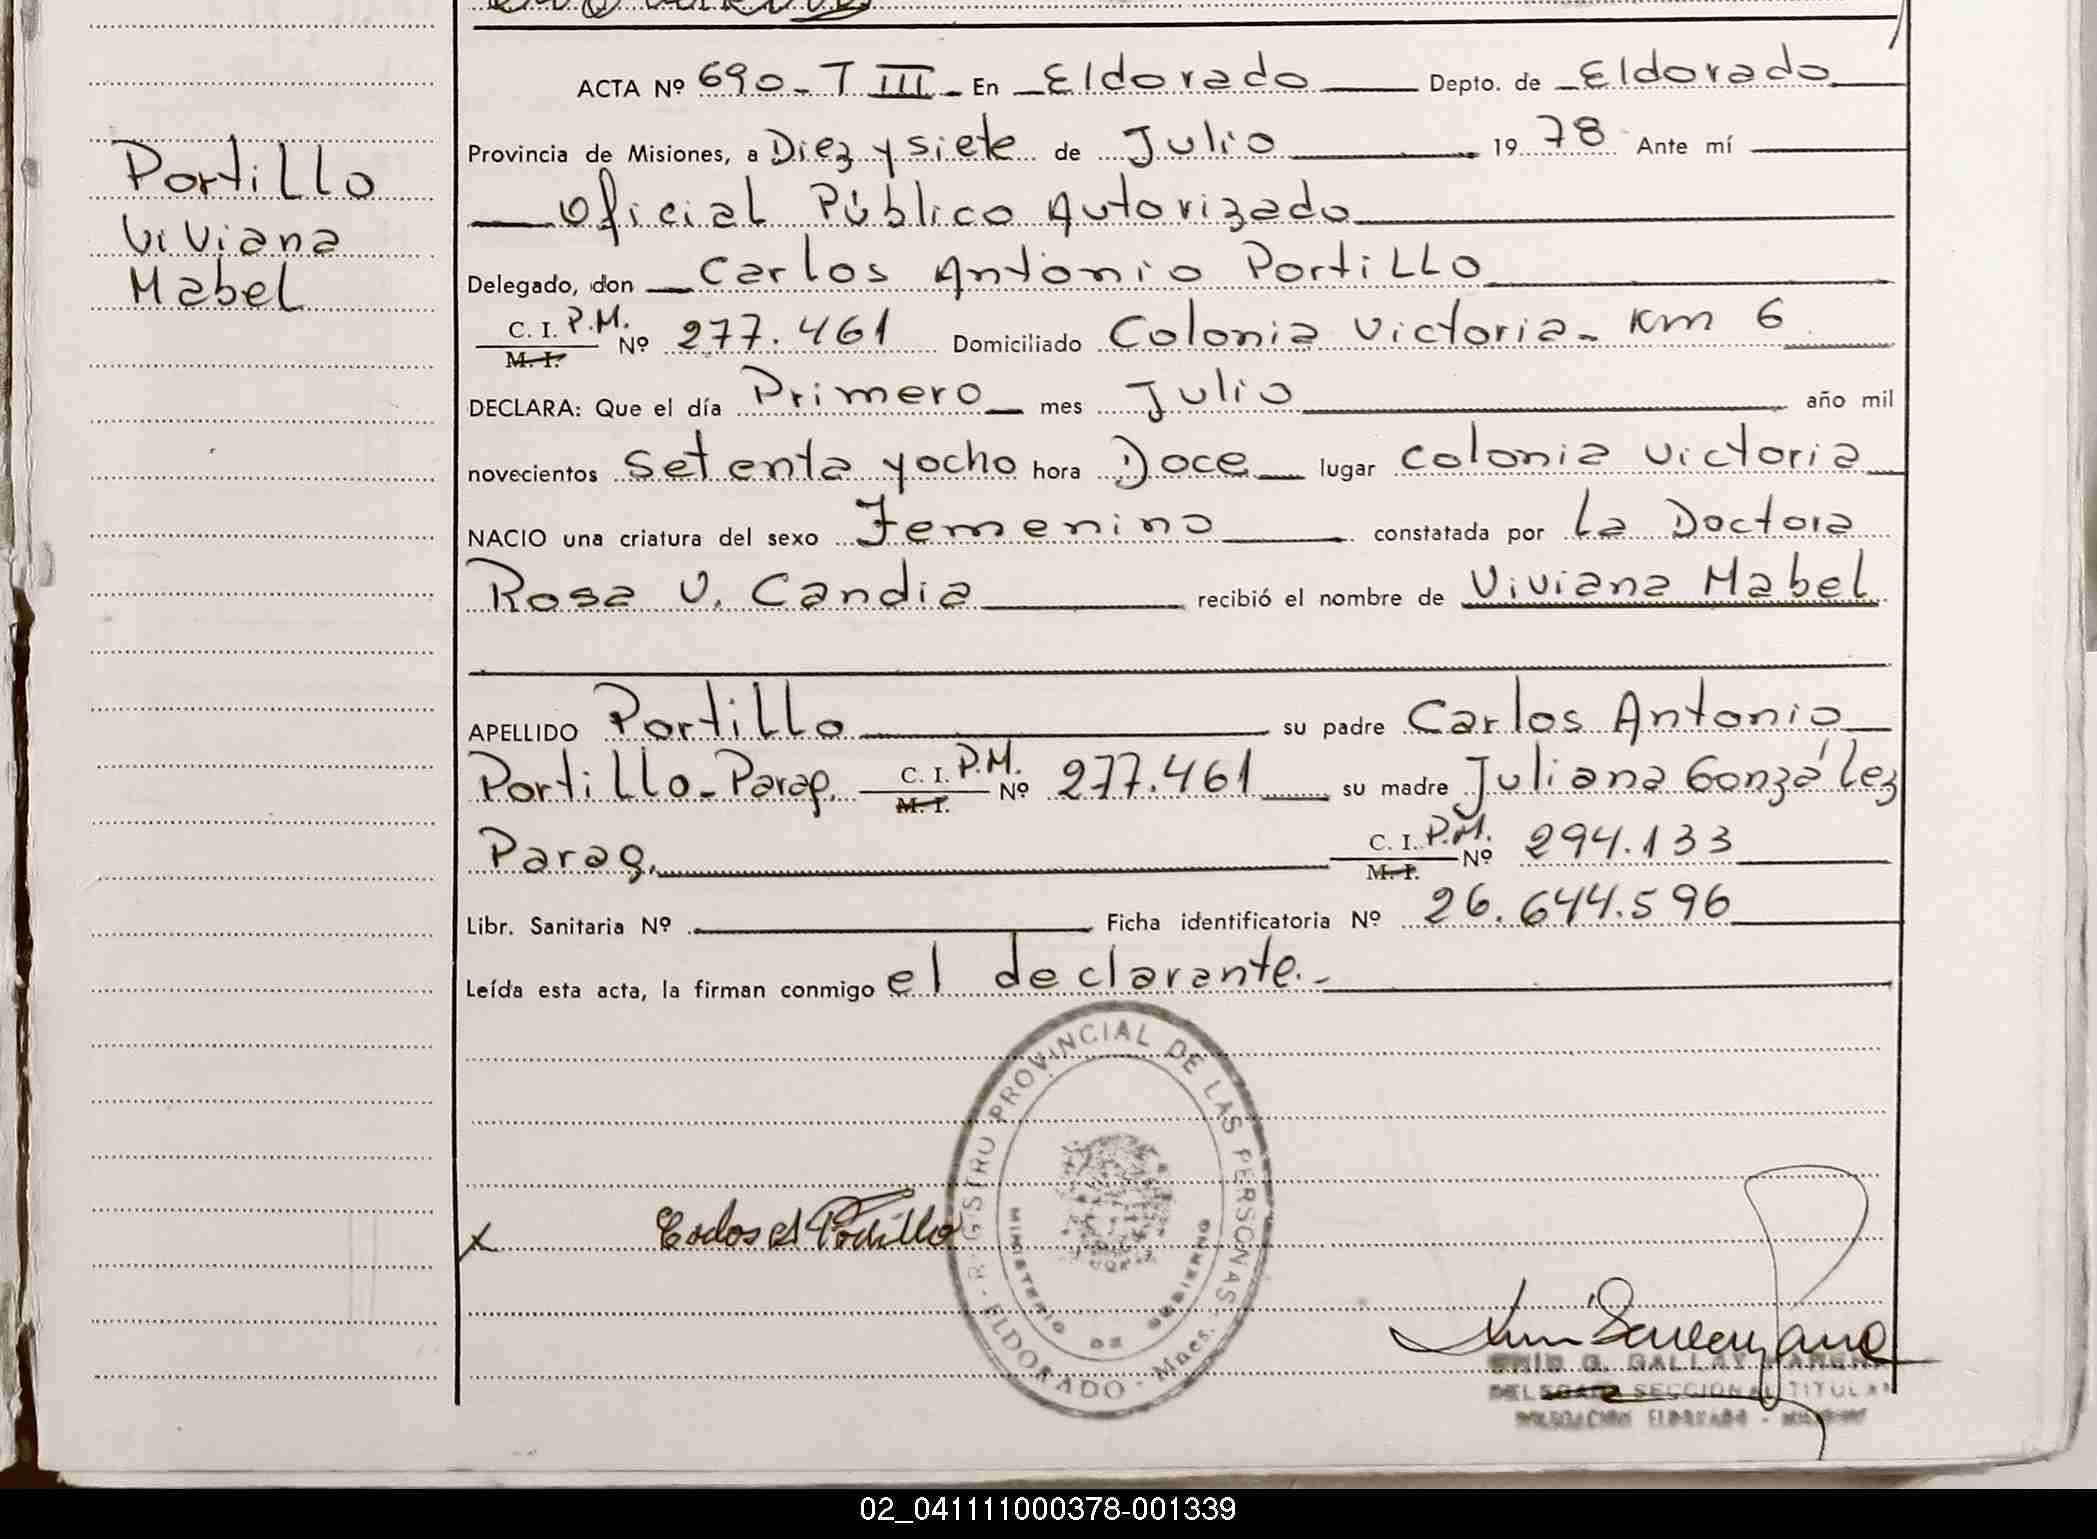 Portillo
Viviana
Mabel
ACTA Nº 690-T III - En Eldorado Depto. de Eldorado
Provincia de Misiones, a Diez y siete de Julio 1978 Ante mí
Oficial Público Autorizado
Delegado, don Carlos Antonio Portillo
C. I. P.M.
M. I. Nº 277.461 Domiciliado Colonia Victoria - Km 6
DECLARA: Que el día Primero mes Julio año mil
novecientos setenta y ocho hora Doce lugar Colonia Victoria
NACIO una criatura del sexo Femenino constatada por La Doctora
Rosa V. Candia recibió el nombre de Viviana Mabel
APELLIDO Portillo su padre Carlos Antonio
Portillo - Parag. C. I. P.M. M. I. Nº 277.461 su madre Juliana González
Parag. C. I. P.M. M. I. Nº 294.133
Libr. Sanitaria Nº Ficha identificatoria Nº 26.644.596
Leída esta acta, la firman conmigo el declarante.-
REGISTRO PROVINCIAL DE LAS PERSONAS
MINISTERIO DE GOBIERNO
R. ELDORADO - Mnes.
x Carlos A Portillo
G. GALLAY
DELEGADA SECCIONAL TITULAR
DELEGACION ELDORADO - MISIONES
02_041111000378-001339